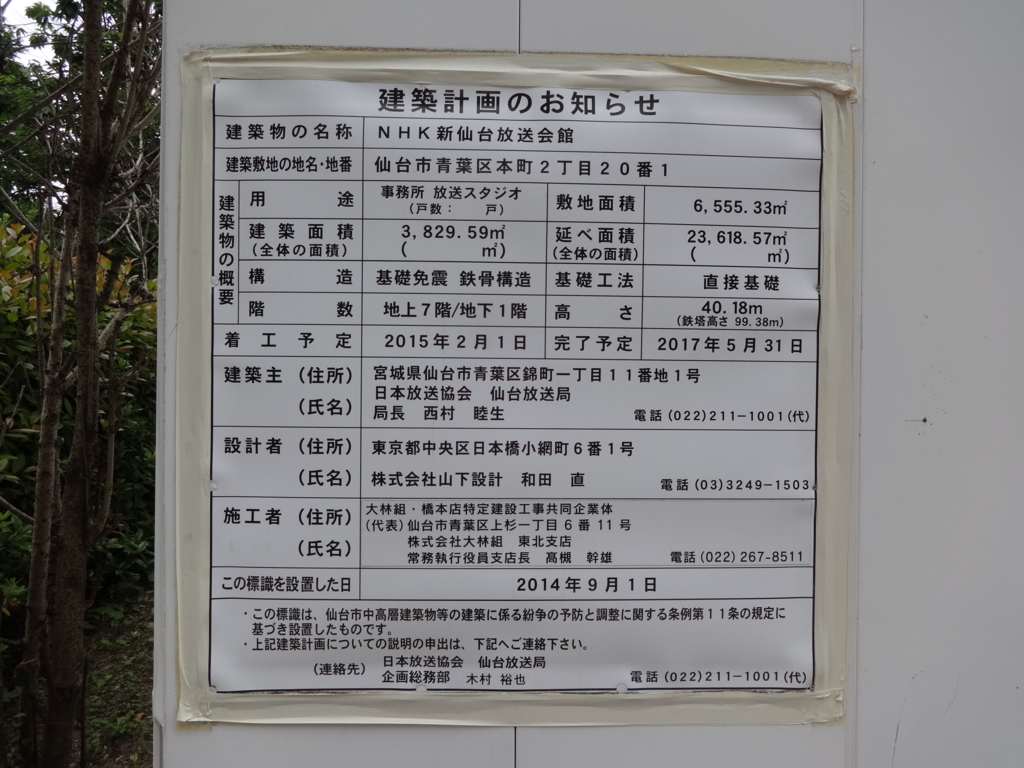 建築計画のお知らせ
建築物の名称 NHK新仙台放送会館
建築敷地の地名・地番 仙台市青葉区本町2丁目20番1
建築物の概要
用途 事務所 放送スタジオ 敷地面積 6,555.33㎡
(戸数: 戸)
建築面積 3,829.59㎡ 延べ面積 23,618.57㎡
(全体の面積) ( ㎡) (全体の面積) ( ㎡)
構造 基礎免震 鉄骨構造 基礎工法 直接基礎
階数 地上7階/地下1階 高さ 40.18m
(鉄塔高さ 99.38m)
着工予定 2015年2月1日 完了予定 2017年5月31日
建築主 (住所) 宮城県仙台市青葉区錦町一丁目11番地1号
日本放送協会 仙台放送局
(氏名) 局長 西村 睦生 電話(022)211-1001(代)
設計者 (住所) 東京都中央区日本橋小網町6番1号
(氏名) 株式会社山下設計 和田 直 電話(03)3249-1503
施工者 (住所) 大林組・橋本店特定建設工事共同企業体
(代表)仙台市青葉区上杉一丁目6番11号
株式会社大林組 東北支店
(氏名) 常務執行役員支店長 髙槻 幹雄 電話(022)267-8511
この標識を設置した日 2014年9月1日
・この標識は、仙台市中高層建築物等の建築に係る紛争の予防と調整に関する条例第11条の規定に
基づき設置したものです。
・上記建築計画についての説明の申出は、下記へご連絡下さい。
(連絡先) 日本放送協会 仙台放送局
企画総務部 木村 裕也 電話(022)211-1001(代)